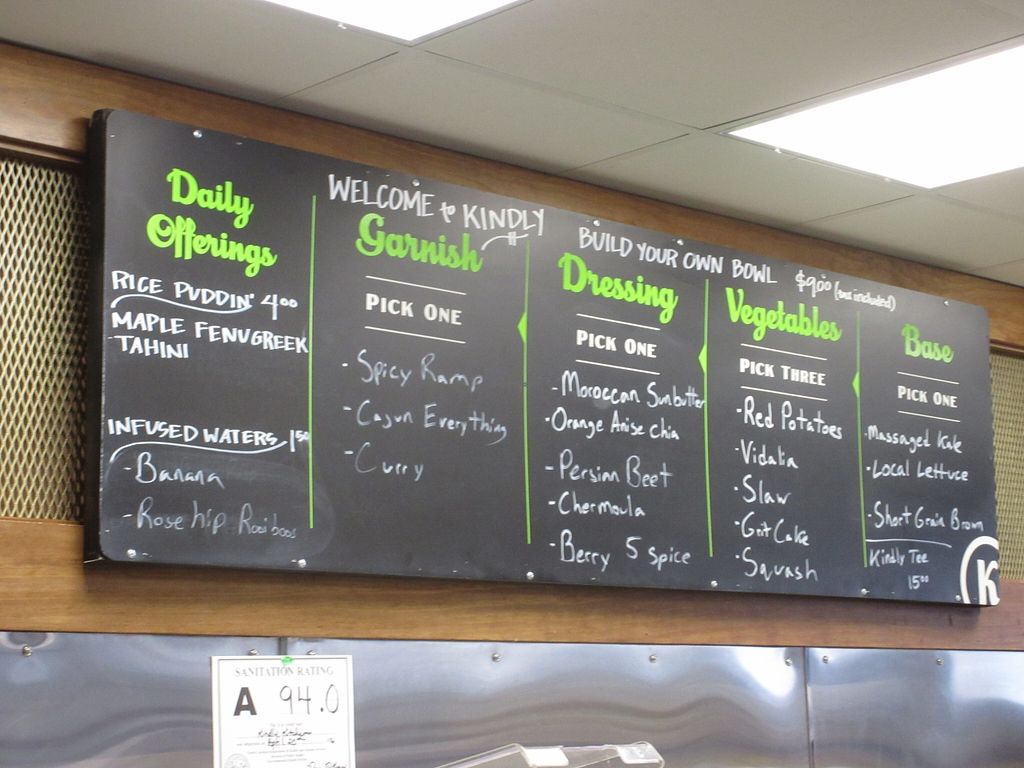 Daily
Offerings
RICE PUDDIN' 4.00
MAPLE FENUGREEK
TAHINI
INFUSED WATERS 1.50
- Banana
- Rose hip Rooiboos
WELCOME to KINDLY
Garnish
PICK ONE
- Spicy Ramp
- Cajun Everything
- Curry
BUILD YOUR OWN BOWL $9.00 (tax included)
Dressing
PICK ONE
- Moroccan Sunbutter
- Orange Anise Chia
- Persian Beet
- Chermoula
- Berry 5 spice
Vegetables
PICK THREE
- Red Potatoes
- Vidalia
- Slaw
- Grit Cake
- Squash
Base
PICK ONE
- Massaged Kale
- Local Lettuce
- Short Grain Brown
Kindly Tee
15.00
K
SANITATION RATING
A 94.0